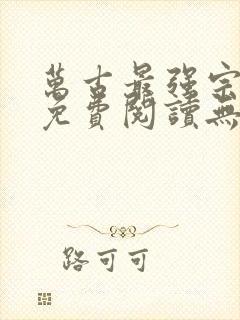 萬古最强宗
免費閱讀無
路可可